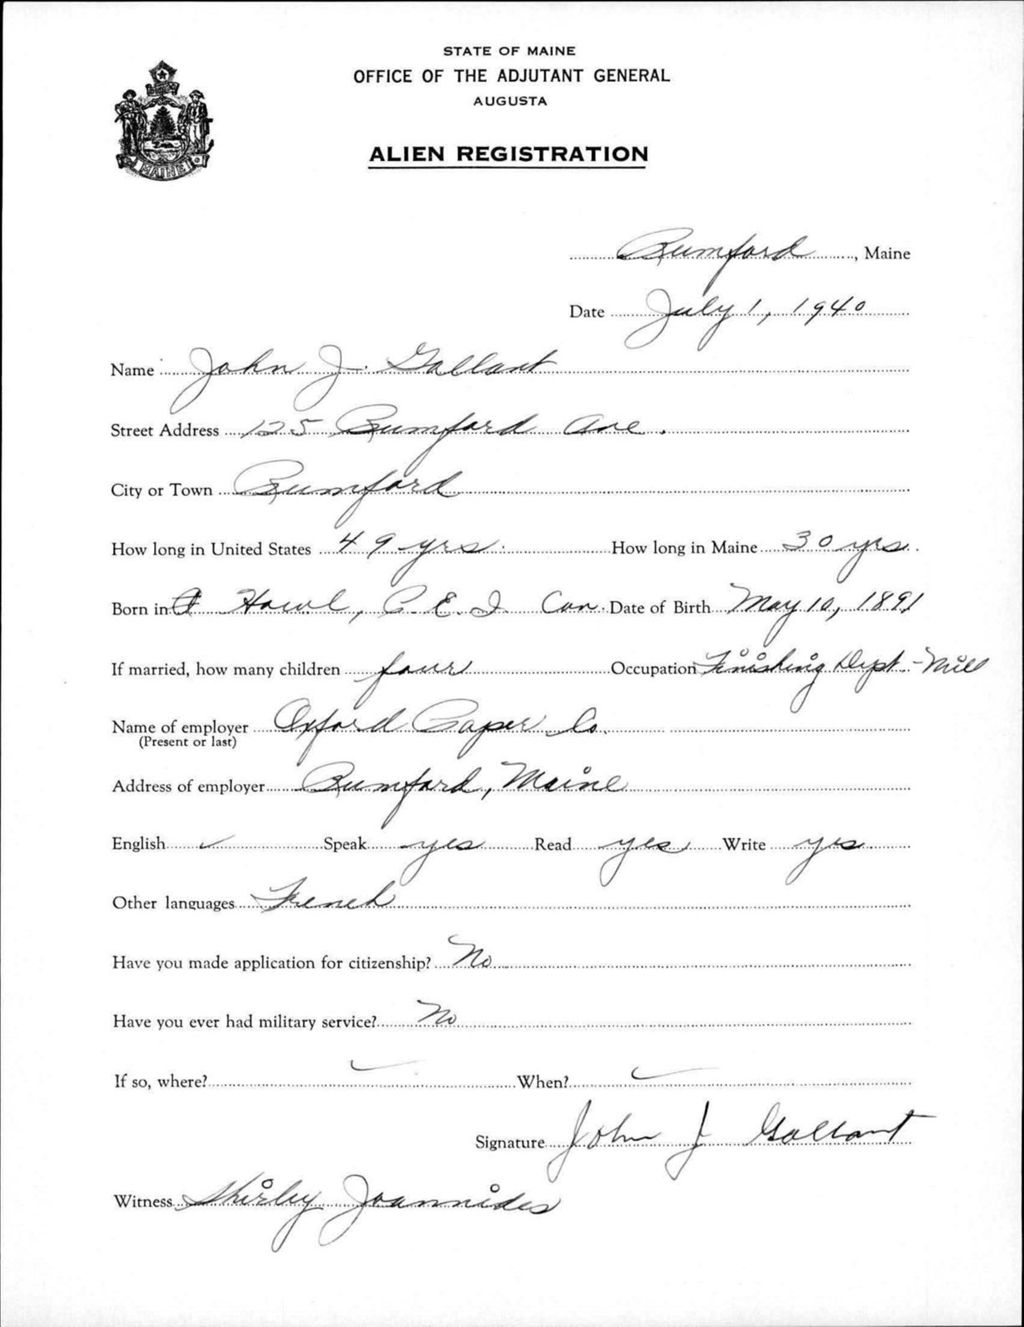 STATE OF MAINE
OFFICE OF THE ADJUTANT GENERAL
AUGUSTA
ALIEN REGISTRATION
MAINE
Rumford, Maine
Date July 1, 1940
Name John J. Gallant
Street Address 125 Rumford Ave.
City or Town Rumford
How long in United States 49 yrs. How long in Maine 30 yrs.
Born in Howl, P.E.I Can. Date of Birth May 10, 1891
If married, how many children four Occupation Finishing Dept.-Mill
Name of employer Oxford Paper Co.
(Present or last)
Address of employer Rumford, Maine
English ✓ Speak yes Read yes Write yes
Other languages French
Have you made application for citizenship? No
Have you ever had military service? No
If so, where? ✓ When? ✓
Signature John J Gallant
Witness Shirley Joannides